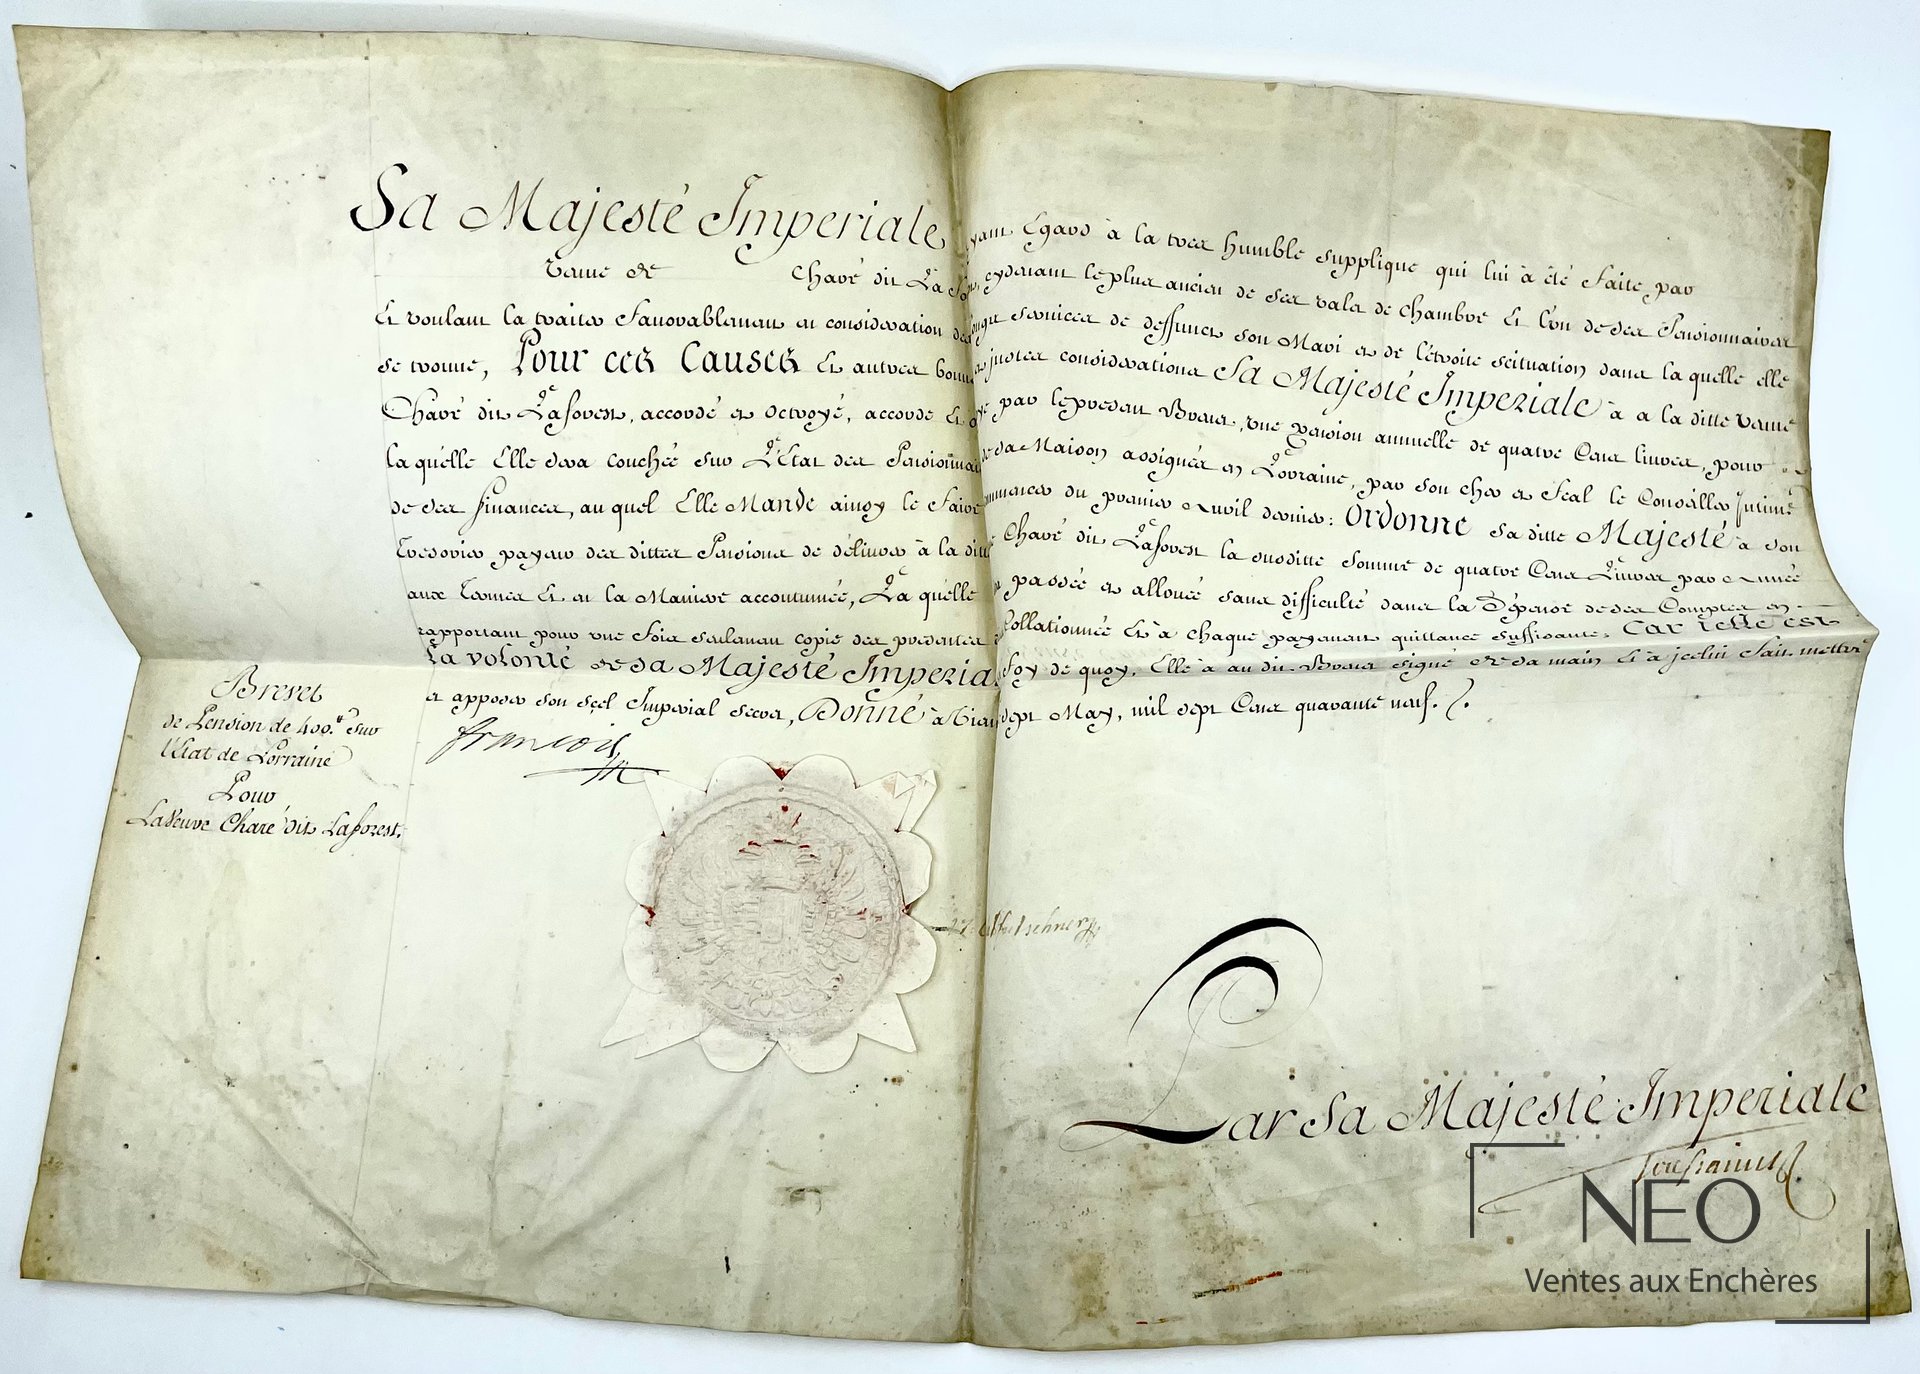 Sa Majesté Imperiale ayant Egard à la tres humble supplique qui lui à été Faite, par
Vame de Charé dit La cydevant le plus ancien de ses valets de chambre Et l'un de ses Pensionnaires
Et voulant la traiter Favorablement en consideration des longs services de deffunct son Mari et de l'étroite scituation dans la quelle elle
se trouve, Pour ces Causes Et autres bonnes et justes considerations Sa Majesté Imperiale à a la ditte Vame
Charé dit Laforest, accordé et octroyé, accorde Et octroye par le present Brevet, une pension annuelle de quatre Cens livres, pour
la quélle Elle sera couchée sur L'Etat des Pensionnaires de sa Maison assignés en Lorraine, par son cher et Feal le Conseiller Intime
de ses Finances, au quel Elle Mande ainsy le Faire commencer du premier Avril dernier: Ordonne sa ditte Majesté à son
Tresorier payeur des dittes Pensions de délivrer à la ditte Charé dit Laforest la susditte somme de quatre Cens Livres par Année
aux Termes Et en la Maniere accoutumée, La quélle passée et allouée sans difficulté dans la Dépense de ses Comptes en
rapportant pour une Fois seulement copie des presentes Collationnée Et à chaque payement quittance suffisante. Car telle est
La volonté de sa Majesté Imperiale Foy de quoy, Elle à au dit Brevet signé de sa main Et à jcelui Fait mettre
et apposer son scel Imperial secret, Donné à Vienne sept May, mil sept Cens quarante neuf.
Brevet
de Pension de 400.# sur
l'Etat de Lorraine
Pour
La Veuve Charé dit Laforest.
François
Par Sa Majesté Imperiale
Toussaint
NEO
Ventes aux Enchères